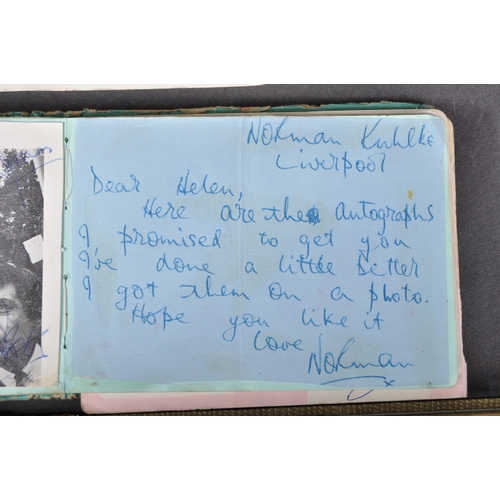 Norman Kuhlke
Liverpool
Dear Helen,
Here are the autographs
I promised to get you
I've done a little better
I got them on a photo.
Hope you like it
love
Norman
x